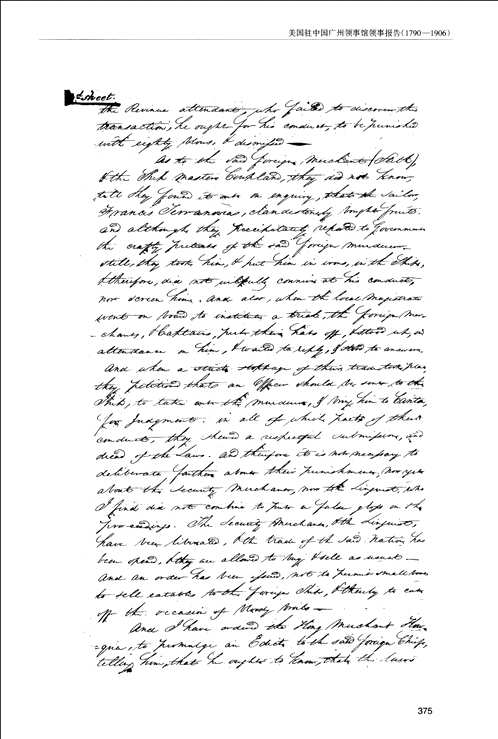 美国驻中国广州领事馆领事报告(1790—1906)
sheet.
the Revenue attendant, who failed to discover the
transaction, he ought for his conduct, to be punished
with eighty blows, & dismissed —
As to the said foreign Merchant
& the Ship Master Copeland, they did not know,
till they found it out on enquiry, that the Sailor,
Francis Terranovia, clandestinely bought fruit.
and although they precipitately reported to Government
the crafty pretences of the said foreign murderer,
still, they took him, & put him in irons, in the Ship,
& therefore, did not wilfully connive at his conduct,
nor screen him. And also, when the local Magistrate
went on board to institute a trial, the foreign Mer-
-chants, & Captains, put their hats off, & stood up, in
attendance on him, & waited to reply, & to answer.
And when a stoppage of their trade took place,
they petitioned that an Officer should be sent to the
Ship, to take over the murderer, & bring him to Canton
for Judgment. in all of which parts of their
conduct, they shewed a respectful submission, and
dread of the Laws. and therefore it is not necessary to
deliberate farther about their punishment, nor yet
about the Security Merchant, nor the Linguist, who
I find did not combine to put a false gloss on the
proceedings. The Security Merchant, & the Linguist,
have been liberated, & the trade of the said Nation has
been opened, & they are allowed to buy & sell as usual —
And an order has been issued, not to permit small boats
to sell eatables to the foreign Ships, & thereby to cut
off the occasion of bloody broils —
And I have ordered the Hong Merchant How-
=qua, to promulge an Edict to the said foreign Chief,
telling him, that he ought to know, that the laws
375